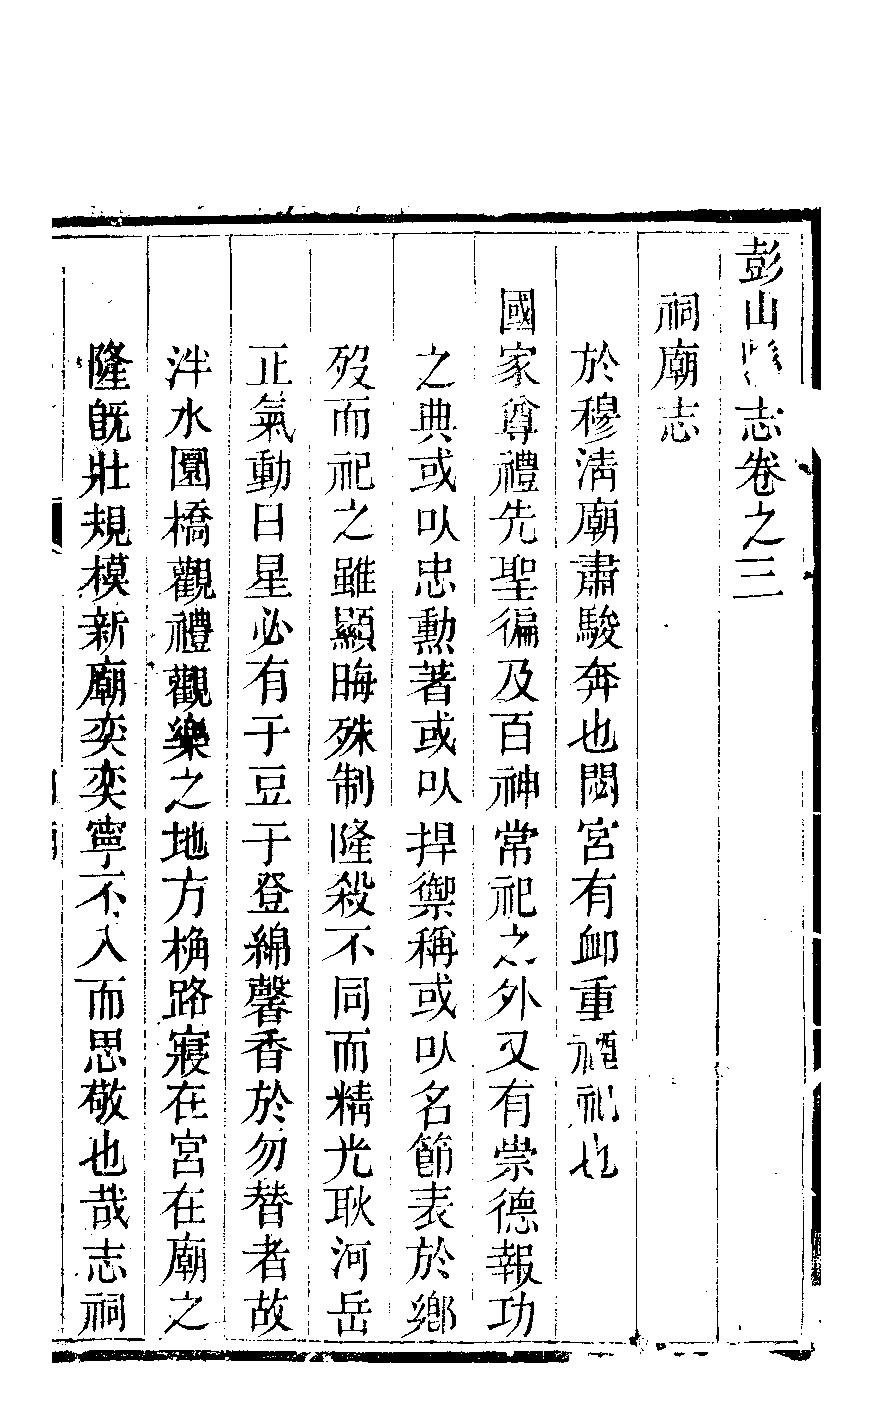 彭山縣志卷之三
祠廟志
於穆淸廟肅駿奔也閟宮有侐重禋祀也
國家尊禮先聖徧及百神常祀之外又有崇德報功
之典或以忠勲著或以捍禦稱或以名節表於鄕
歿而祀之雖顯晦殊制隆殺不同而精光耿河岳
正氣動日星必有于豆于登綿馨香於勿替者故
泮水圜橋觀禮觀樂之地方桷路寢在宮在廟之
隆旣壯規模新廟奕奕寧不入而思敬也哉志祠